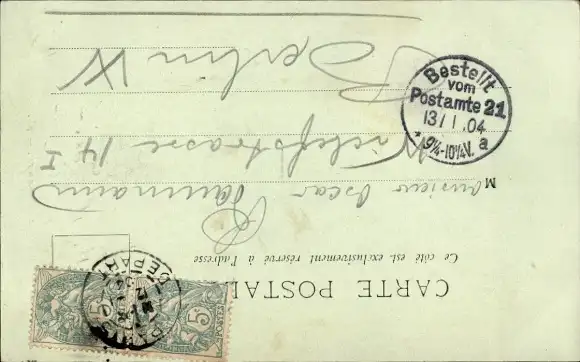 CARTE POSTALE
Ce côté est exclusivement réservé à l'adresse
Monsieur Oscar
Naumann
strasse 14 I
Berlin W
Bestellt
vom
Postamte 21
13/1.04
* 9¼-10¼V. a
PARIS
DEPART
5
5